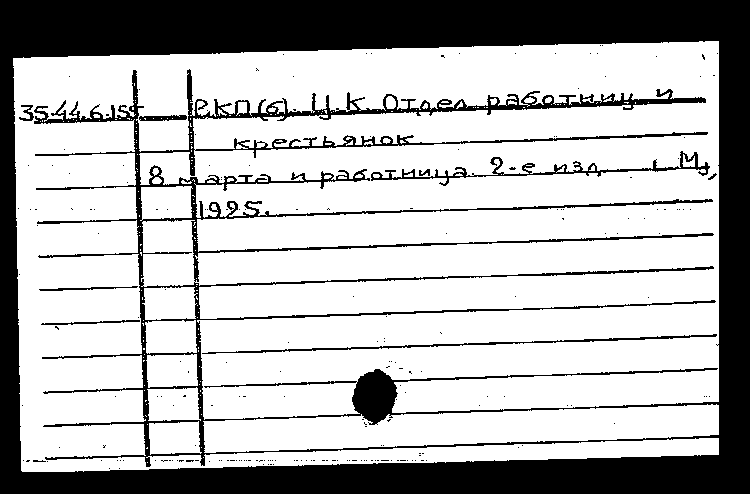 35.44.6.155 РКП(б). Ц.К. Отдел работниц и
крестьянок.
8 марта и работница. 2-е изд. М.,
1925.